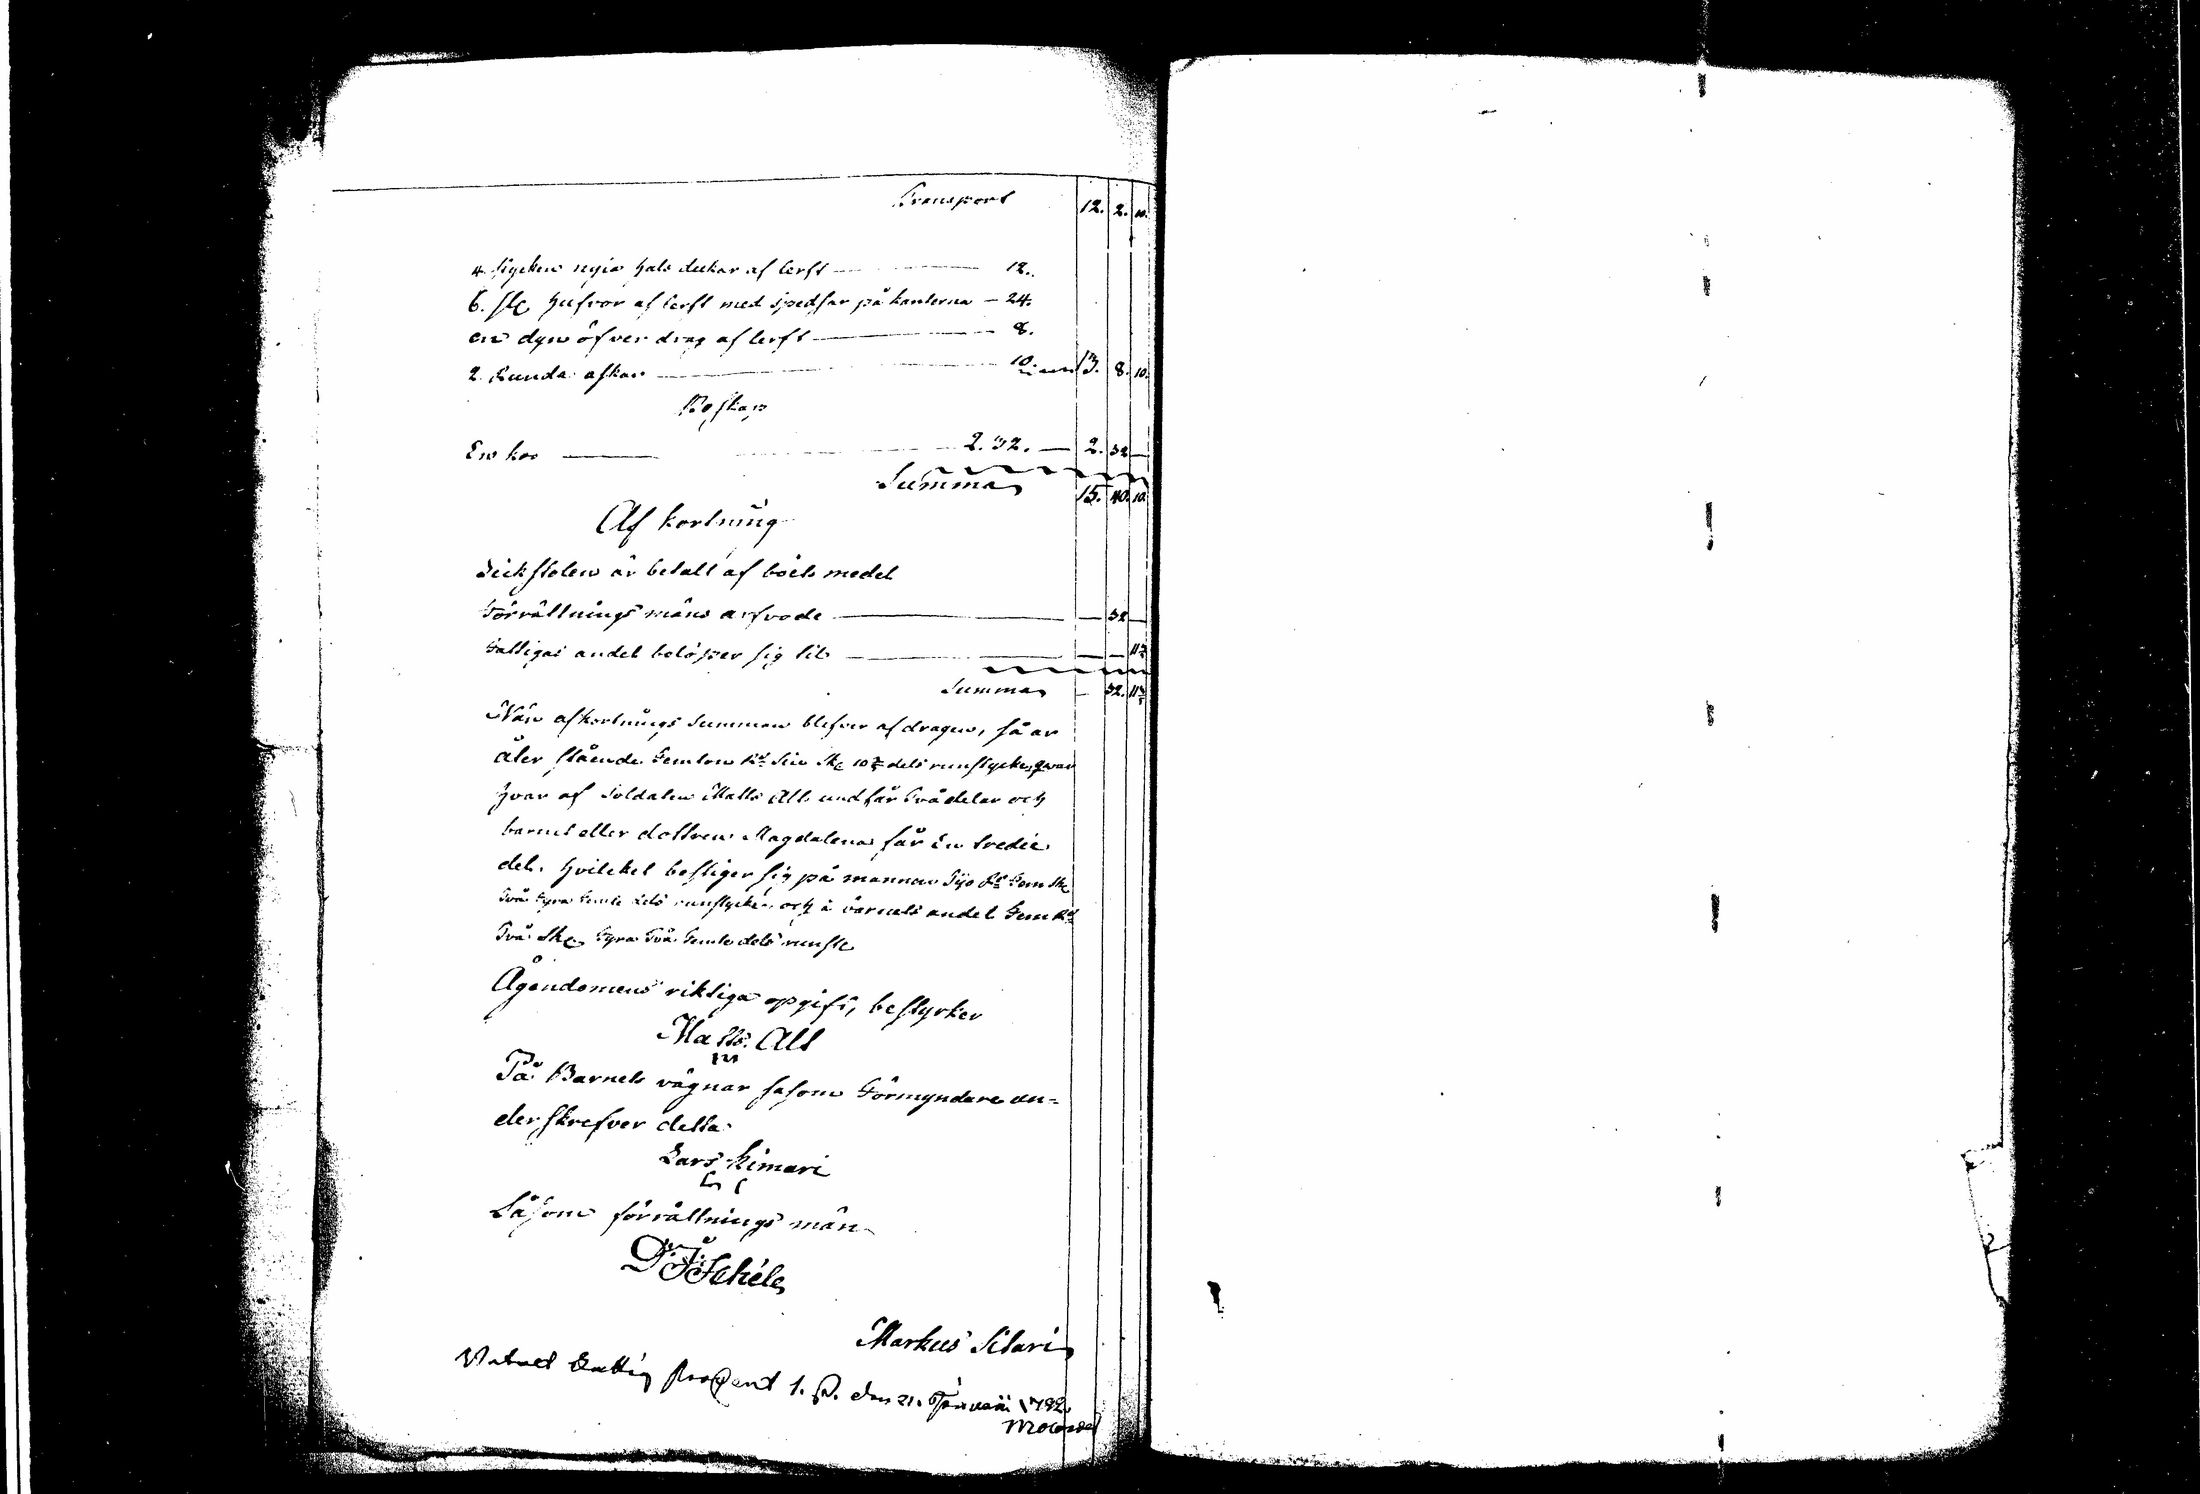 Transport 12. 2. 10.
4. stycken nyia hals dukar af lerft — 12.
6. stc hufvor af lerft med spedsar på kanterna — 24.
en dyn öfver drag af lerft — 8.
2 Runda askar — 10. 13. 8. 10.
Boskap
En koo — 2. 32. — 2. 32 —
Summa 15. 40. 10.
Af kortning
Likstolen är betalt af boets medel
Förrättnings mäns arfvode — — 32 —
Fattigas andel belöper sig til — — —
Summa — 32.
När afkortnings Summan blefver af dragen, så är
åter stående Femton Rd Siu Sk 10 dels runstycke,
hvar af Soldaten Matts Alt undfår Två delar och
barnet eller dottren Magdalena får En tredie
del. hvilcket bestiger sig på mannen Tijo Rd Fem Sk
Två Fyra Femte dels runstycke, och i barnets andel Fem Rd
Två Sk Fyra Två Femte dels runst
Ägendomens riktiga opgift, bestyrker
Matts Alt
På Barnets vägnar såsom Förmyndare un=
derskrefver detta
Lars Kimari
Såsom förrättnings män
D: J: Schéle
Markus Silari
Betalt Fattig Procent 1. den 21. Januarii 1792.